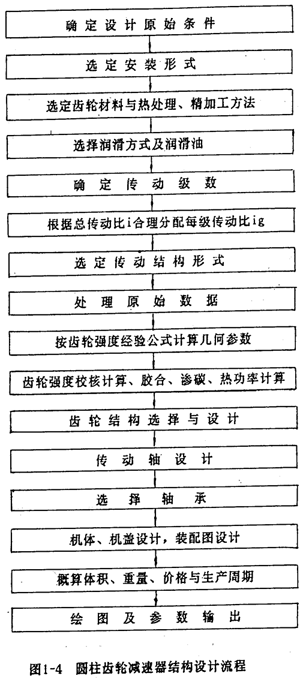 确定设计原始条件
选定安装形式
选定齿轮材料与热处理、精加工方法
选择润滑方式及润滑油
确定传动级数
根据总传动比i合理分配每级传动比ig
选定传动结构形式
处理原始数据
按齿轮强度经验公式计算几何参数
齿轮强度校核计算、胶合、渗碳、热功率计算
齿轮结构选择与设计
传动轴设计
选择轴承
机体、机盖设计，装配图设计
概算体积、重量、价格与生产周期
绘图及参数输出
图1-4 圆柱齿轮减速器结构设计流程